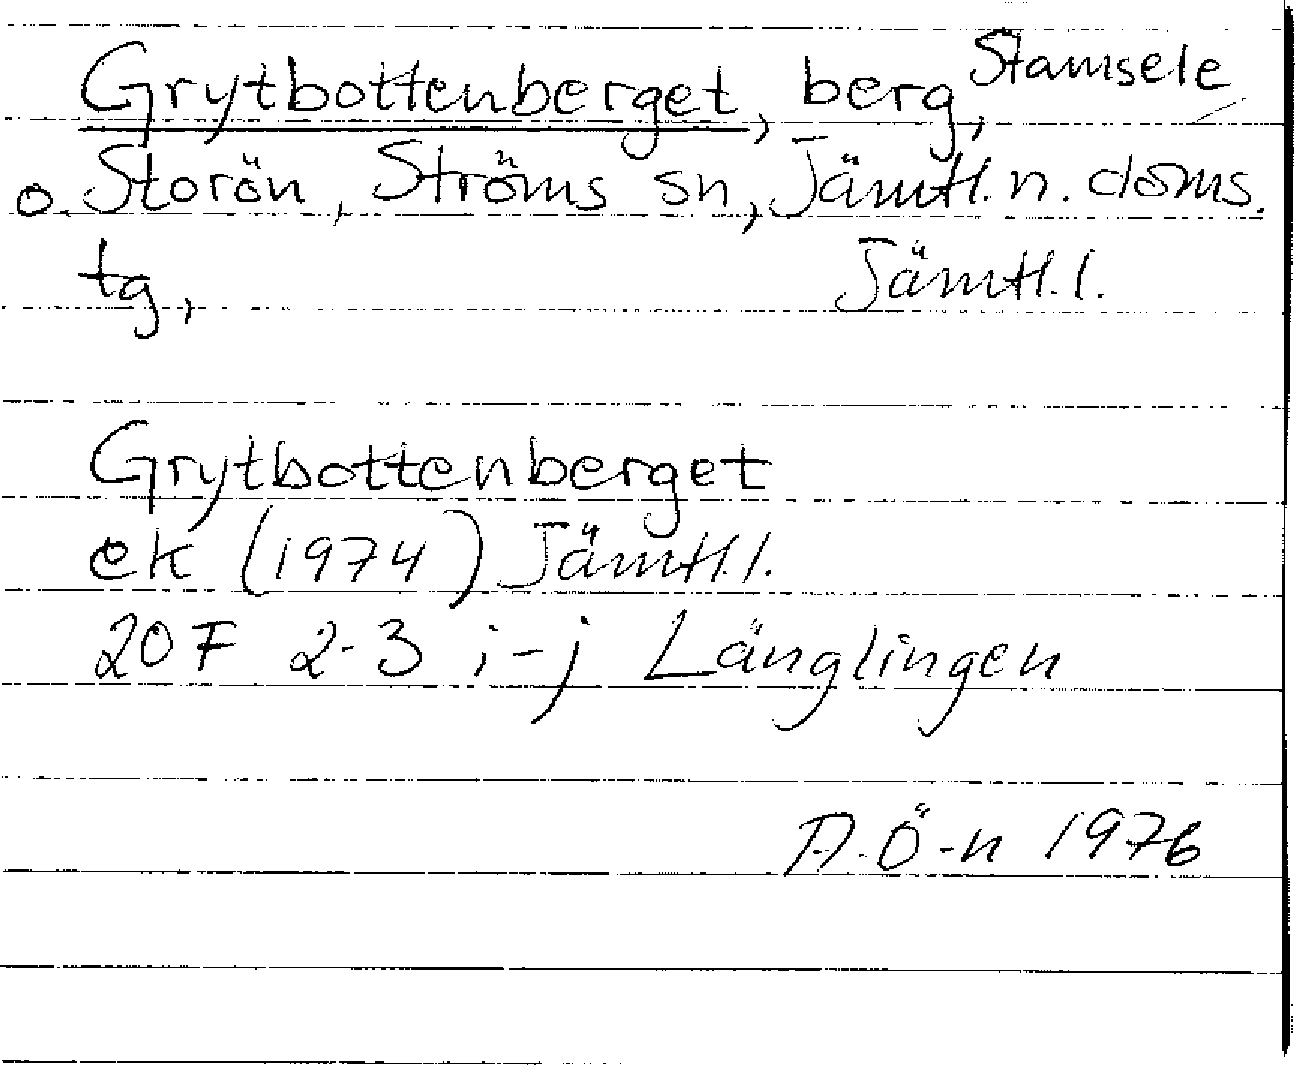 Grytbottenberget, berg, Stamsele
o. Storön, Ströms sn, Jämtl. n. doms.
tg, Jämtl. l.
Grytbottenberget
ek (1974) Jämtl. l.
20 F 2-3 i-j Länglingen
A. Ö-n 1976